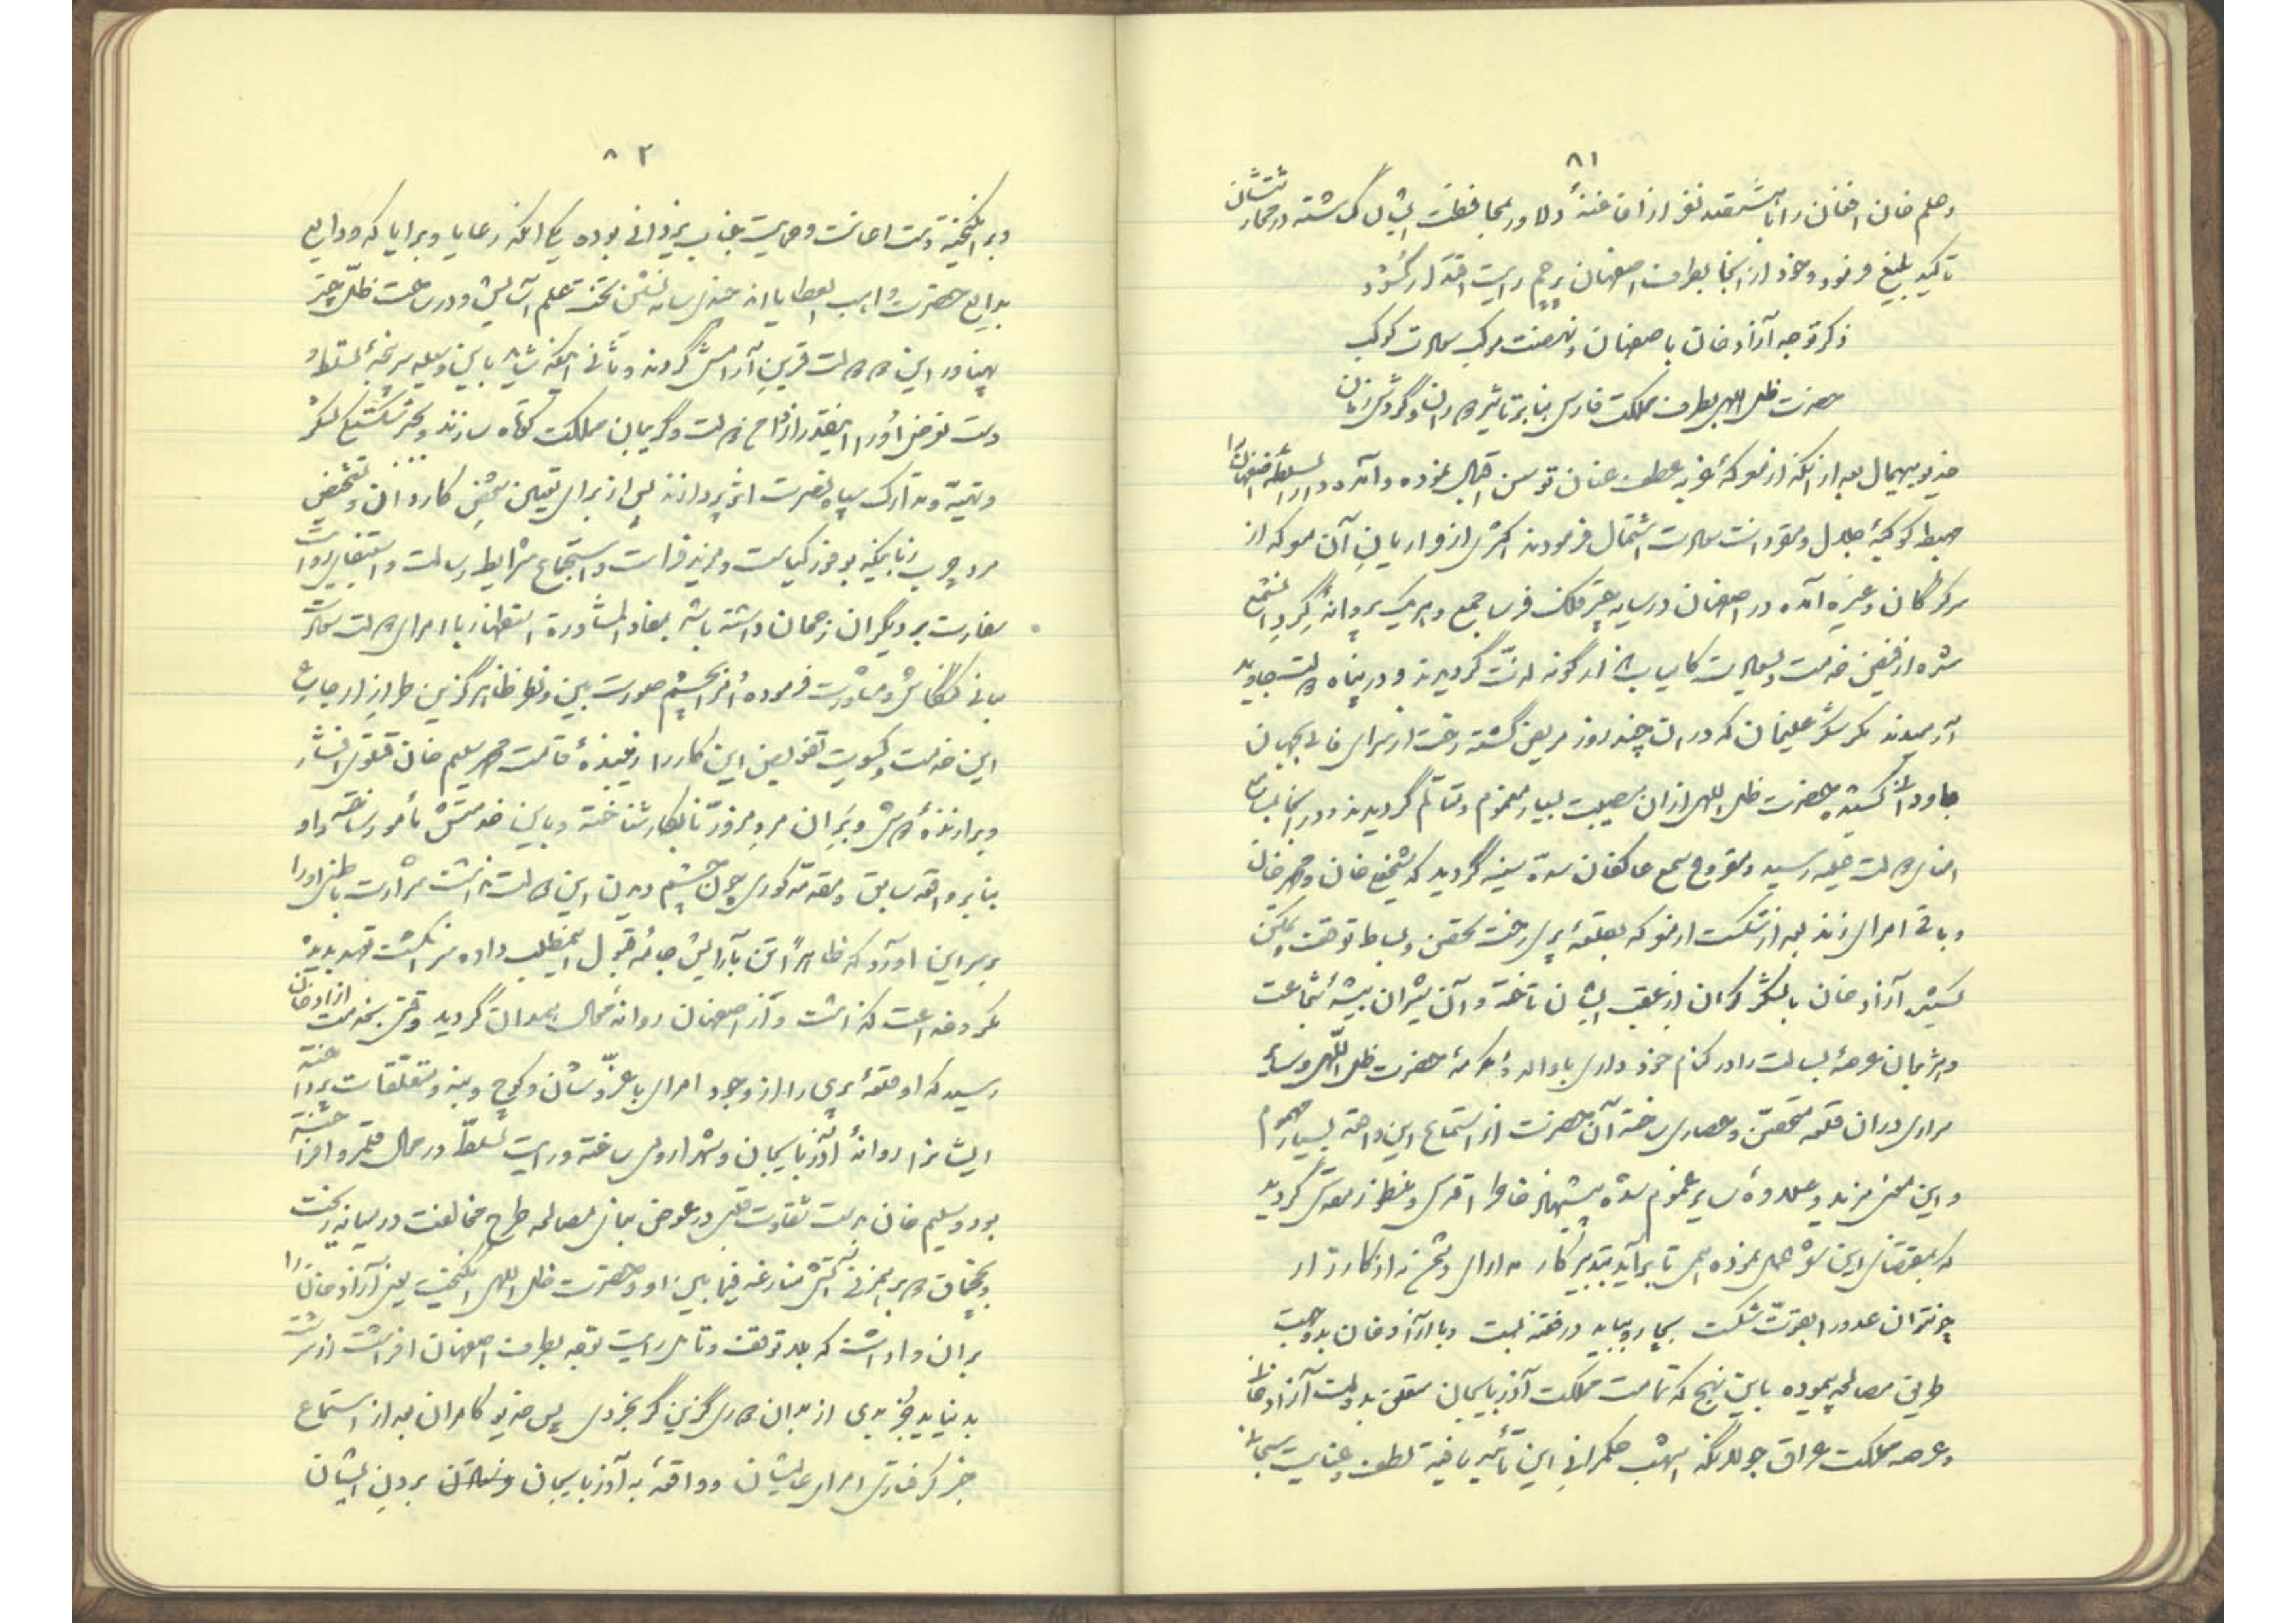 ۸۱
و حلم خان افغان را با ششصد نفر از افاغنهٔ دلاور بمحافظت ایشان گماشته در محارستشان
تاکید بلیغ فرمود و خود از آنجا بطرف اصفهان پرچم رایت اقتدار گشود
ذکر توجه آزاد خان باصفهان و نهضت موکب سعادت کوکب
حضرت ظل اللهی بطرف مملکت فارس بنا بر تاثیر دوران و گردش زمان
خدیو بیهمال بعد از آنکه از معرکهٔ عطف عنان توسن اقبال نموده و آمده دار السلطنهٔ اصفهان را
مهبط کوکبهٔ جلال و سعادت اشتمال فرمودند اکثری از فراریان آن معرکه از
کزکان و غیره آمده در اصفهان در سایه چتر فلک فرسا جمع و هر یک پروانهٔ گرد آن شمع
شده از فیض خدمت و سعادت کامیاب انواع گونه لذت گردیدند و در پناه دولت جاوید
آرمیدند مگر شکر علیخان که در آن چند روز مریض گشته رخت از سرای فانی بجهان
جاودانی کشیده حضرت ظل اللهی از آن مصیبت بسیار مغموم و متألم گردیدند و در آنجا بمسامع
امنای دولت علیه رسید و مقروع سمع عاکفان سدهٔ سنیه گردید که شیخعلی خان و محمد خان
و باقی امرای زند بعد از شکست از معرکه بقلعهٔ پری رفته تحصن و بساط توقف و تمکن
کشیده آزاد خان با لشکر گران از عقب ایشان تاخته و آن شیران بیشهٔ شجاعت
و هژبران عرصهٔ بسالت را در کنام خود داری با والدهٔ مکرمهٔ حضرت ظل اللهی و سایر
سرادری در آن قلعه متحصن و حصاری ساخته آن حضرت از استماع این واقعه بسیار مهموم
و این معنی مزید و علاوهٔ سایر غموم شده پیشنهاد خاطر اقدس و منظور نظر مقدس گردید
که بمقتضای این شعر عمل نموده همی تا برآید بتدبیر کار مدارای دشمن به از کارزار
چو نتوان عدو را بقوت شکست بچاره بباید در فتنه بست و با آزاد خان بدو جهت
طریق مصالحه پیموده باین نهج که تمامت مملکت آذربایجان متعلق بدولت آزاد خان
و عرصه مملکت عراق جولانگه اشهب حکمرانی این تأیید یافتهٔ لطف و عنایت سبحانی
۸۲
و برانگیختهٔ دست اعانت و حمایت جناب یزدانی بوده یکی آنکه رعایا و برایا که ودایع
بدایع حضرت واهب العطایا اند چندی سایه نشین تحت علم آسایش و در ساحت ظل چتر
پهناور این دولت قرین آرامش گردند و ثانی آنکه شاید باین وسیله سرپنجهٔ تسلط و
دست تعرض او را آنقدر از دامن دولت و گریبان مملکت کوتاه سازند و بجبر شکستگی لشکر
و تهیه و تدارک سپاه نصرت اثر پردازند پس از برای تعیین شخص کاردان و تشخیص
مرد چرب زبانیکه بوفور کیاست و مزید فراست و استجماع شرایط رسالت و استیفای ادوات
سفارت بر دیگران رجحان داشته باشد بمفاد المشاورة استظهار با امرای دولت سعادت
مبانی کنکاش و مشاورت فرموده آخر بچشم صورت بین و نظر ظاهر گزین طراز از جامهٔ
این خدمت و کسوت تفویض این کار را زیبندهٔ قامت محمد سلیم خان قتلوی افشار
و برازندهٔ دوش و بران مرد مزور نابکار شناخته و باین خدمتش مأمور ساخته و او
بنا بر واقعهٔ سابق و مقدمهٔ کوری چون چشم دیدن این دولت نداشت شرارت باطنی او را
بر سر این آورد که ظاهراً تن بآرایش جامهٔ قبول این مطلب داده سر انگشت تعهد بدیدهٔ
مکر و خداعت گذاشت و از اصفهان روانهٔ محال همدان گردید وقتی بخدمت آزاد خان
رسید که او قلعهٔ پری را از وجود امرای با عز و شان و کوچ و بنه و متعلقات پرداخته
ایشانرا روانهٔ آذربایجان و شهر ارومی ساخته و رایت تسلط در محال قلمرو افراخته
بود و سلیم خان بدست شقاوت قلبی در عوض بنای مصالحه طرح مخالفت در میانه ریخت
و بچخماق دو بهمزنی آتش منازعه فیما بین او و حضرت ظل اللهی انگیخت یعنی آزاد خان را
بران واداشت که بلا توقف و تامل رایت توجه بطرف اصفهان افراشت از سرشت
بد نیاید بجز بدی از بدان دوری گزین گر بخردی پس خدیو کامران بعد از استماع
خبر گرفتاری امرای عالیشان و واقعهٔ به آذربایجان بردن ایشان